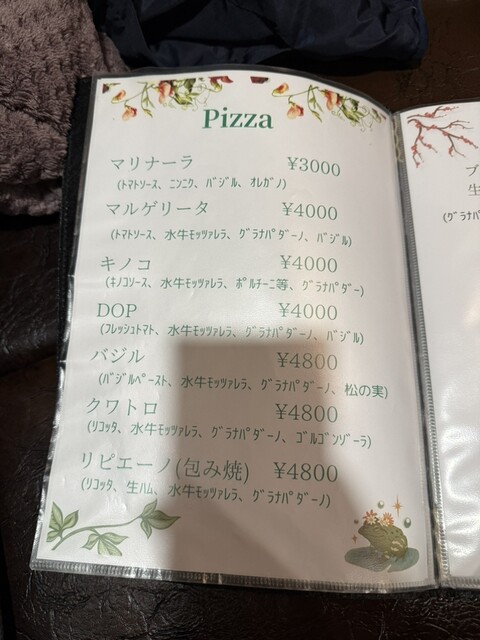 Pizza
マリナーラ ¥3000
(ﾄﾏﾄｿｰｽ、ﾆﾝﾆｸ、ﾊﾞｼﾞﾙ、ｵﾚｶﾞﾉ)
マルゲリータ ¥4000
(ﾄﾏﾄｿｰｽ、水牛ﾓｯﾂｧﾚﾗ、ｸﾞﾗﾅﾊﾟﾀﾞｰﾉ、ﾊﾞｼﾞﾙ)
キノコ ¥4000
(ｷﾉｺｿｰｽ、水牛ﾓｯﾂｧﾚﾗ、ﾎﾟﾙﾁｰﾆ等、ｸﾞﾗﾅﾊﾟﾀﾞｰ)
DOP ¥4000
(ﾌﾚｯｼｭﾄﾏﾄ、水牛ﾓｯﾂｧﾚﾗ、ｸﾞﾗﾅﾊﾟﾀﾞｰﾉ、ﾊﾞｼﾞﾙ)
バジル ¥4800
(ﾊﾞｼﾞﾙﾍﾟｰｽﾄ、水牛ﾓｯﾂｧﾚﾗ、ｸﾞﾗﾅﾊﾟﾀﾞｰﾉ、松の実)
クワトロ ¥4800
(ﾘｺｯﾀ、水牛ﾓｯﾂｧﾚﾗ、ｸﾞﾗﾅﾊﾟﾀﾞｰﾉ、ｺﾞﾙｺﾞﾝｿﾞｰﾗ)
リピエーノ(包み焼) ¥4800
(ﾘｺｯﾀ、生ﾊﾑ、水牛ﾓｯﾂｧﾚﾗ、ｸﾞﾗﾅﾊﾟﾀﾞｰﾉ)
ブ
生
(ｸﾞﾗﾅﾊﾟ